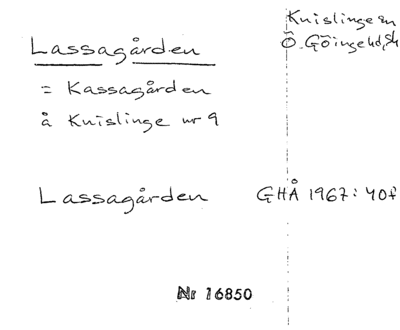 Knislinge sn
Lassagården
Ö. Göinge hd, Sk
= Kassagården
å Knislinge nr 9
Lassagården GHÅ 1967: 40f
Nr 16850